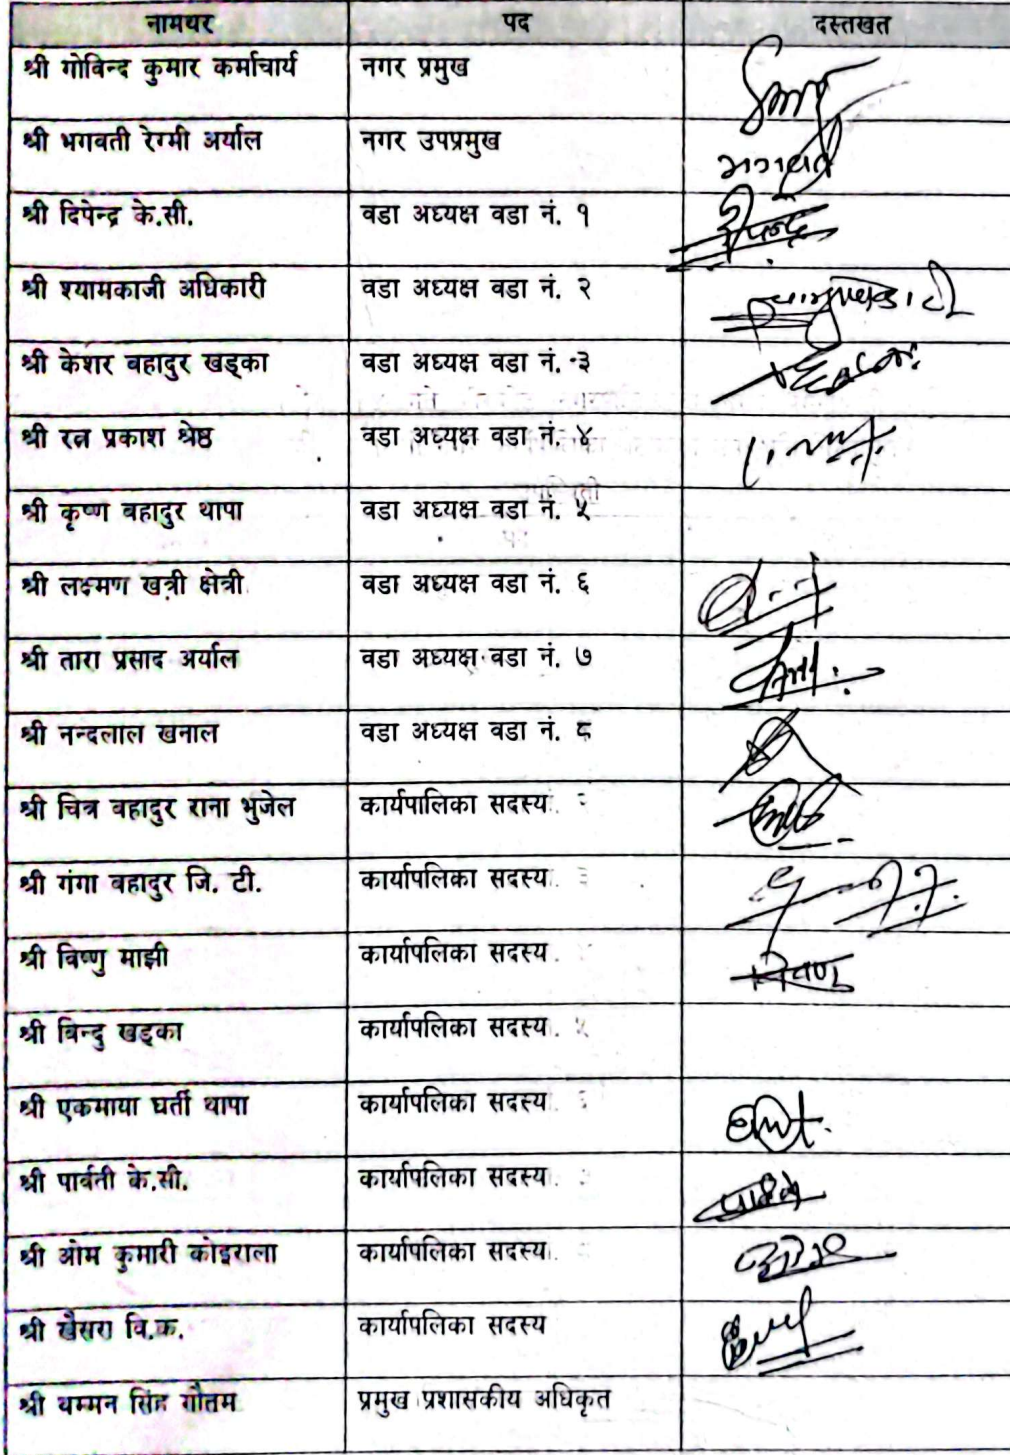 नामथर पद दस्तखत
श्री गोविन्द कुमार कर्माचार्य नगर प्रमुख
श्री भगवती रेग्मी अर्याल नगर उपप्रमुख
श्री दिपेन्द्र के.सी. वडा अध्यक्ष वडा नं. १
श्री श्यामकाजी अधिकारी वडा अध्यक्ष वडा नं. २
श्री केशर बहादुर खड्का वडा अध्यक्ष वडा नं. ३
श्री रत्न प्रकाश श्रेष्ठ वडा अध्यक्ष वडा नं. ४
श्री कृष्ण बहादुर थापा वडा अध्यक्ष वडा नं. ५
श्री लक्ष्मण खत्री क्षेत्री वडा अध्यक्ष वडा नं. ६
श्री तारा प्रसाद अर्याल वडा अध्यक्ष वडा नं. ७
श्री नन्दलाल खनाल वडा अध्यक्ष वडा नं. ८
श्री चित्र बहादुर राना भुजेल कार्यपालिका सदस्य
श्री गंगा बहादुर जि. टी. कार्यापलिका सदस्य
श्री विष्णु माझी कार्यापलिका सदस्य
श्री बिन्दु खड्का कार्यापलिका सदस्य
श्री एकमाया घर्ती थापा कार्यापलिका सदस्य
श्री पार्वती के.सी. कार्यापलिका सदस्य
श्री ओम कुमारी कोइराला कार्यापलिका सदस्य
श्री खैसरा वि.क. कार्यापलिका सदस्य
श्री थम्मन सिंह गौतम प्रमुख प्रशासकीय अधिकृत